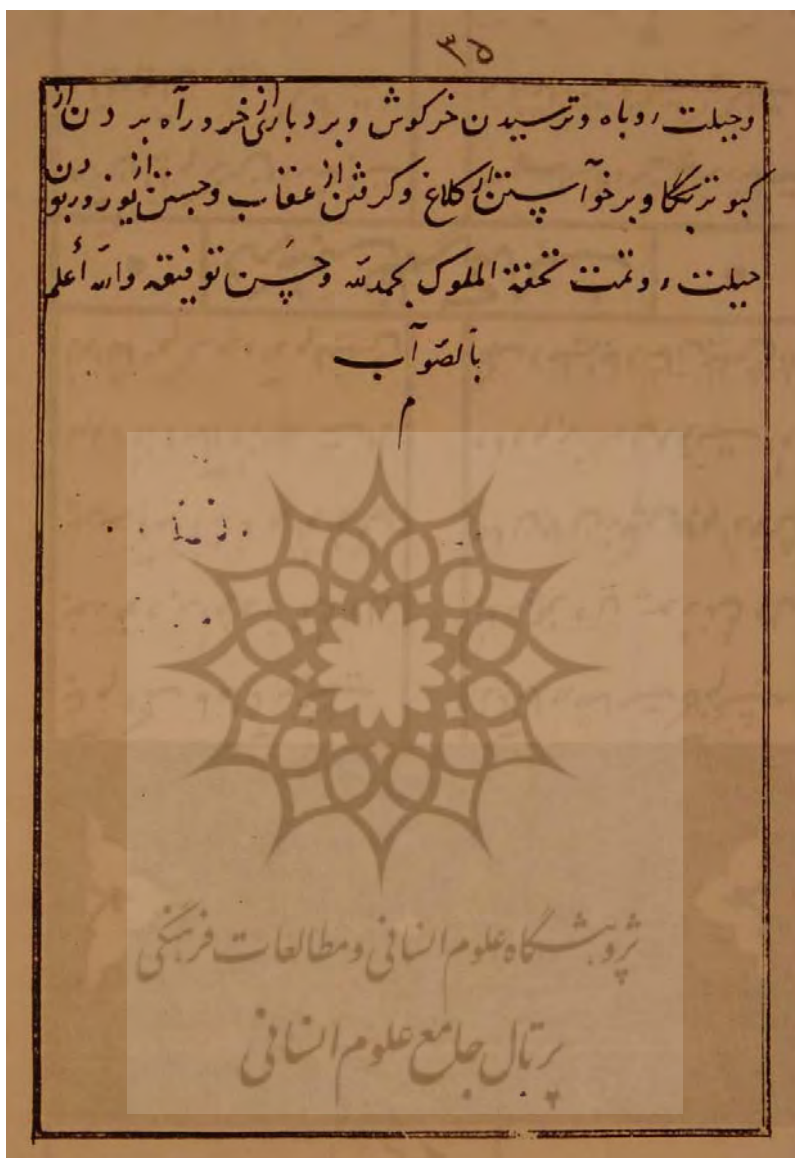 ۳۵
وحیلت روباه وترسیدن خرکوش وبردباری از خر وراه بردن از
کبوتر بکا وبرخوآستن از کلاغ وکرفتن از عقاب وجستن از یوز وربودن
حیلت رو تمت تحفة الملوک بحمدلله وحسن توفیقه والله أعلم
بالصّوآب
م
پژوهشگاه علوم انسانی ومطالعات فرهنگی
پرتال جامع علوم انسانی